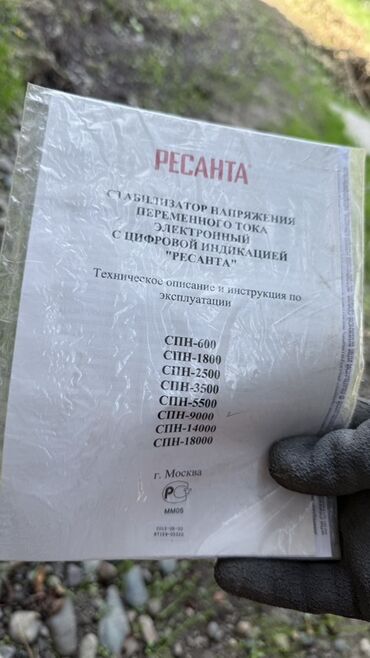 РЕСАНТА®
СТАБИЛИЗАТОР НАПРЯЖЕНИЯ
ПЕРЕМЕННОГО ТОКА
ЭЛЕКТРОННЫЙ
С ЦИФРОВОЙ ИНДИКАЦИЕЙ
"РЕСАНТА"
Техническое описание и инструкция по
эксплуатации
СПН-600
СПН-1800
СПН-2500
СПН-3500
СПН-5500
СПН-9000
СПН-14000
СПН-18000
г. Москва
ММ05